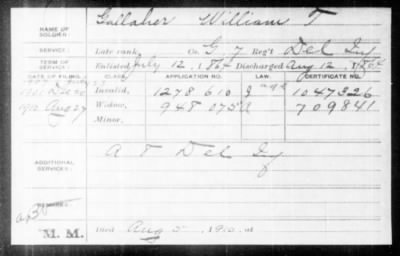 NAME OF SOLDIER: Gallaher William T
SERVICE: Late rank, Co. G 7 Reg't Del Inf
TERM OF SERVICE: Enlisted July 12, 1864 Discharged Aug 12, 1864
DATE OF FILING. CLASS. APPLICATION NO. LAW. CERTIFICATE NO.
1901 Dec 20 Invalid, 1278 610 1047326
1910 Aug 27 Widow, 948 075 709841
Minor.
ADDITIONAL SERVICES: Del Inf
REMARKS:
M. M. Died Aug 5, 1910, at